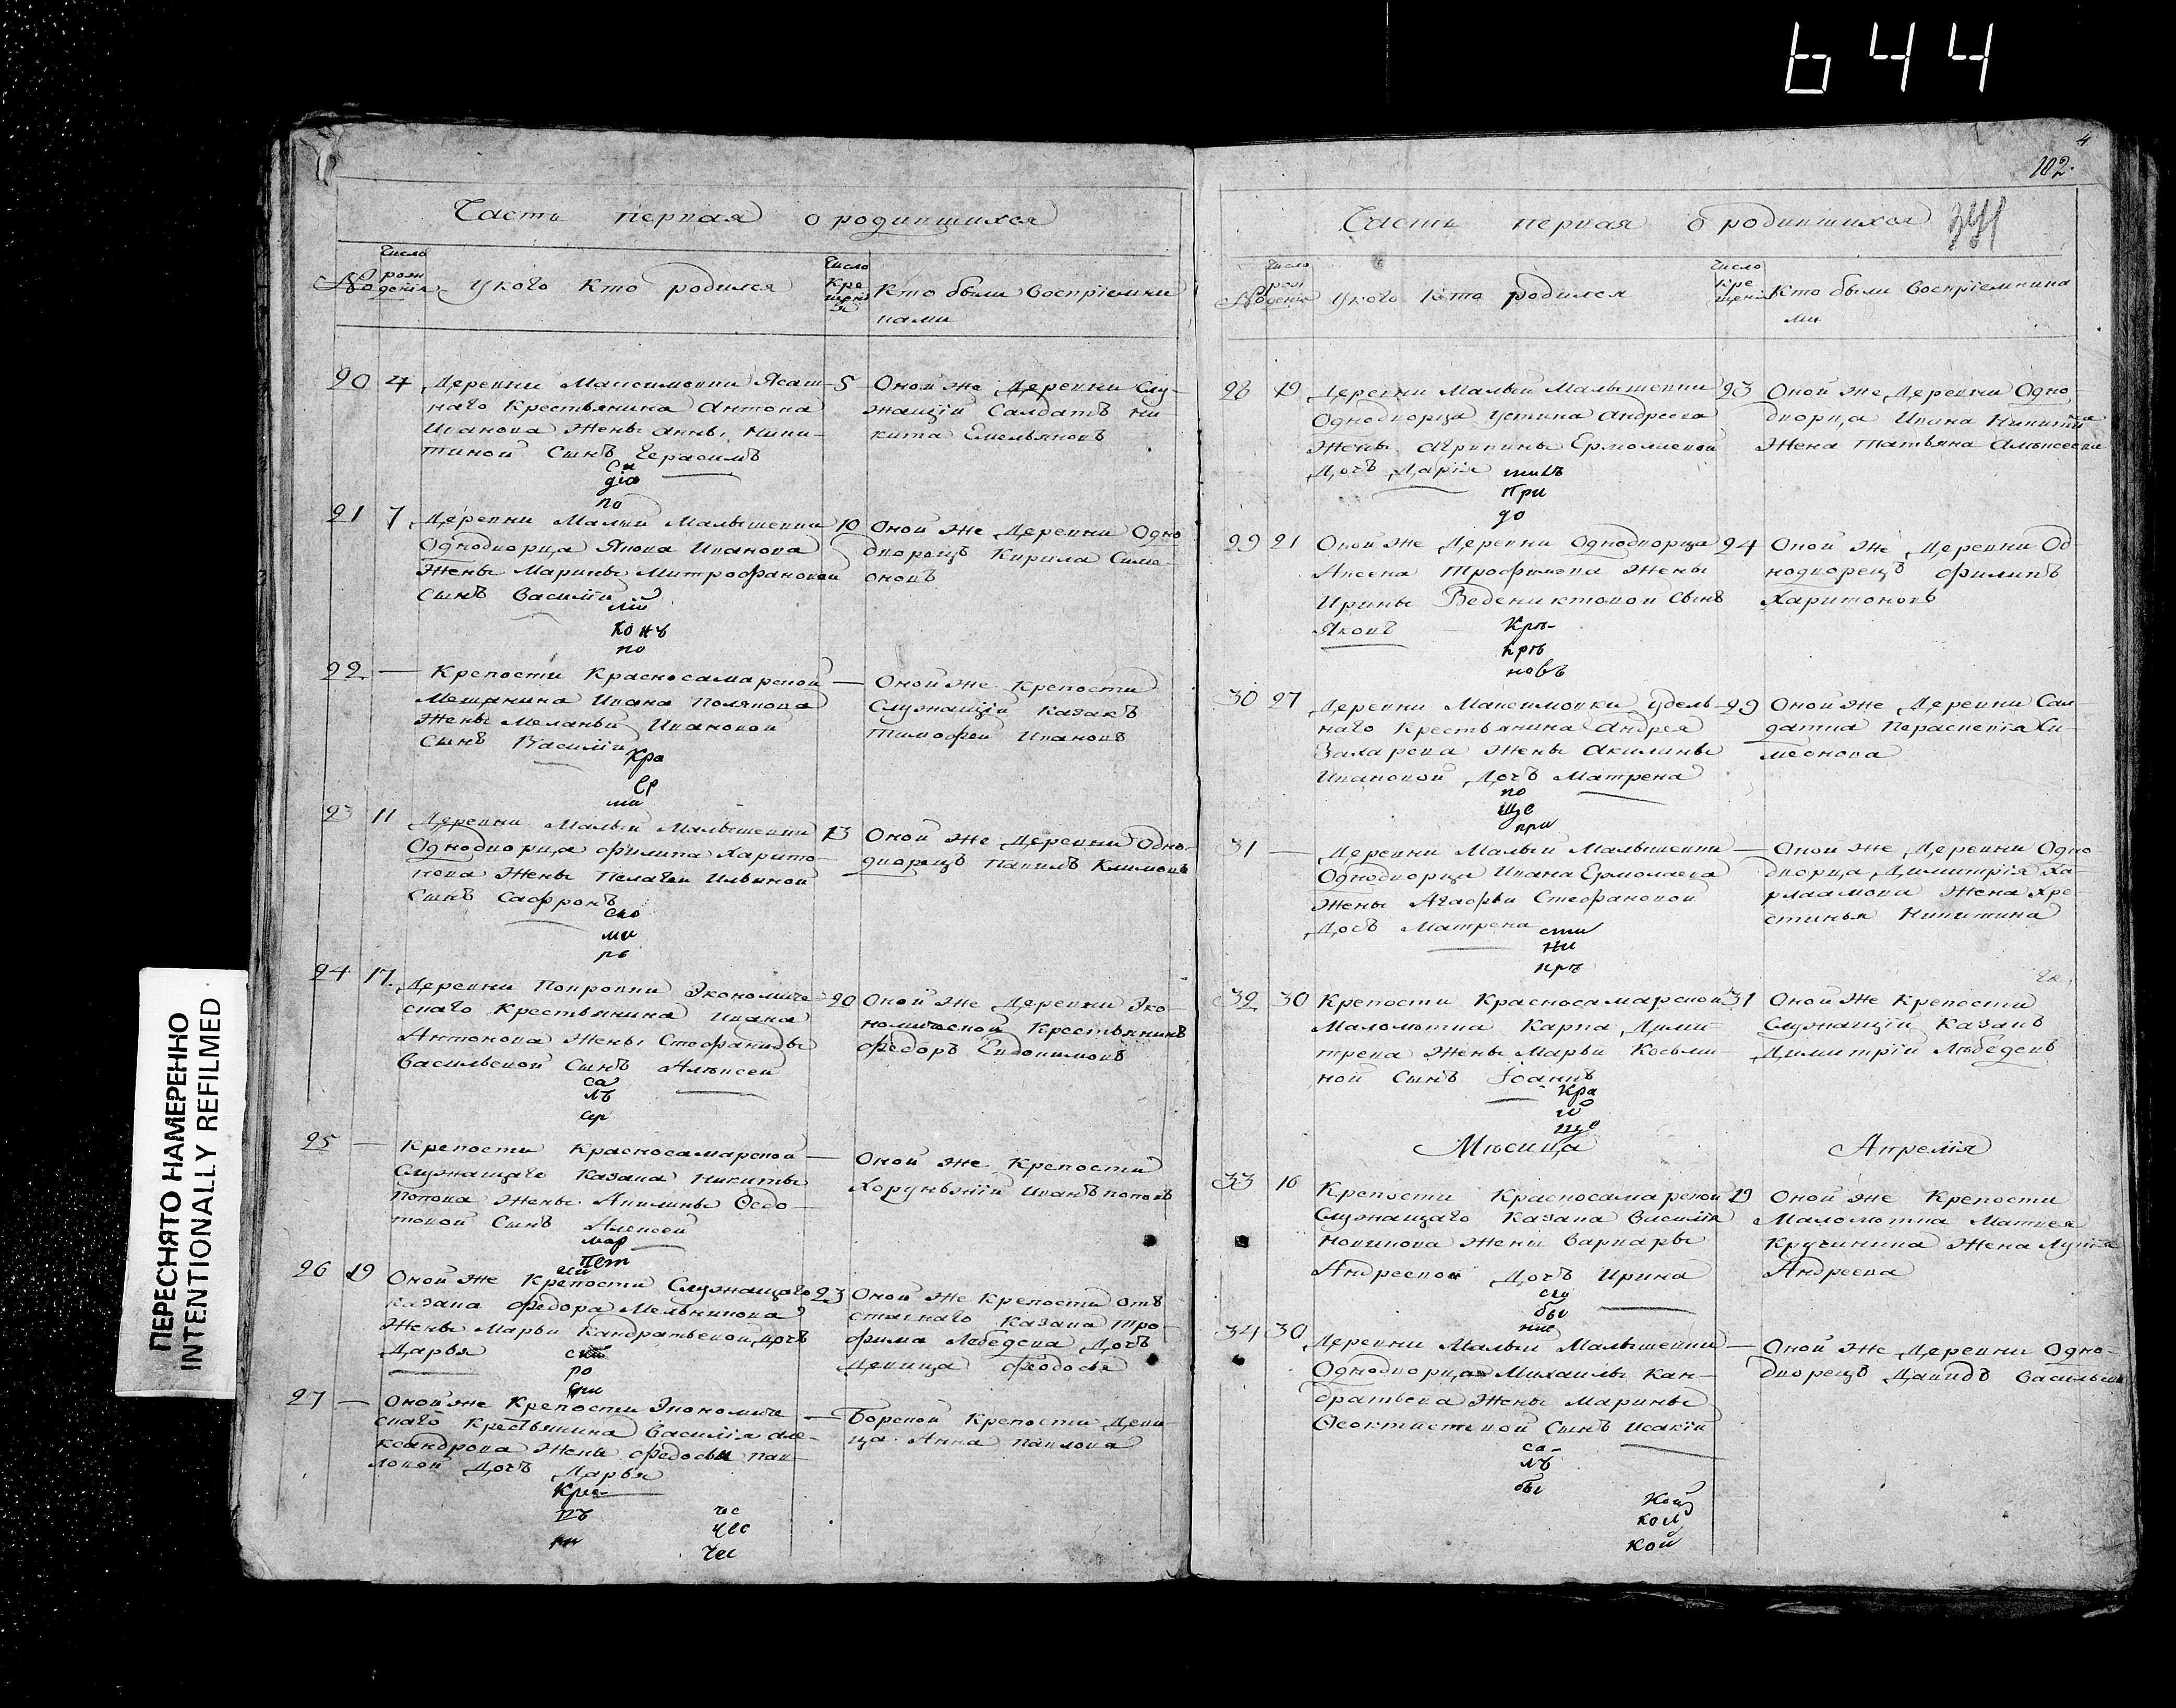 644
ПЕРЕСНЯТО НАМЕРЕННО
INTENTIONALLY REFILMED
Часть первая о родившихся
№
Число рождения
У кого кто родился
Число крещения
Кто были восприемни
ками
20 4 Деревни Максимовки Ясаш-
наго Крестьянина Антона
Иванова Жены Анны Ники-
тиной Сынъ Герасимъ
5 Оной же Деревни Слу-
жащій Салдатъ Ни
кита Емельяновъ
си
діа
по
21 7 Деревни Малый Малышевки
Однодворца Якова Иванова
Жены Марины Митрофановой
Сынъ Василій
10 Оной же Деревни Одно
дворецъ Кирила Симо-
оновъ
лій
конъ
по
22 — Крепости Красносамарской
Мещанина Ивана Полякова
Жены Меланьи Ивановой
Сынъ Василій
— Оной же Крепости
Служащій Казакъ
Тимофей Ивановъ
Кра
Ср
ми
23 11 Деревни Малый Малышевки
Однодворца Филипа Харито-
нова Жены Пелагеи Ильиной
Сынъ Сафронъ
13 Оной же Деревни Одно-
дворецъ Павилъ Климовъ
ско
ми
ръ
24 17 Деревни Покровки Экономиче
скаго Крестьянина Ивана
Антонова Жены Стефаниды
Васильевой Сынъ Алѣксей
20 Оной же Деревни Эко-
номической Крестьянинъ
Федоръ Евдокимовъ
са
лъ
ар
25 — Крепости Красносамарской
Служащаго Казака Никиты
Попова Жены Акилины Ѳедо-
товой Сынъ Алексей
— Оной же Крепости
Хоруньжій Иванъ Поповъ
мар
Пет
26 19 Оной же Крепости Служащаго
Казака Федора Мельникова
Жены Марьи Кандратьевой дочь
Дарья
23 Оной же Крепости Отъ
ставнаго Казака Тро
фима Лебедева Дочь
Девица Феодосья
ро
27 — Оной же Крепости Экономиче
скаго Крестьянина Василія Але-
ксандрова Жены Федосьи Пав-
ловой Дочь Дарья
— Борской Крепости Деви
ца Анна Павлова
Крес-
въ
чес
чес
чес
4
102.
Часть первая о родившихся
№
Число рождения
У кого кто родился
Число крещения
Кто были восприемника
ми
28 19 Деревни Малый Малышевки
Однодворца Устина Андреева
Жены Агрипины Ермолаевой
Дочь Дарія
23 Оной же Деревни Одно
дворца Ивана Никитина
Жена Татьяна Алѣксеева
шивъ
При
до
29 21 Оной же Деревни Однодворца
Аксена Трофимова Жены
Ирины Ведениктовой Сынъ
Яковъ
24 Оной же Деревни Од
нодворецъ Филипъ
Харитоновъ
Кръ-
кръ
новъ
30 27 Деревни Максимовки Удель-
наго Крестьянина Андрея
Захарова Жены Акилины
Ивановой Дочь Матрена
29 Оной же Деревни Сал-
датка Параскевія Си-
меонова
по
ще
при
31 — Деревни Малый Малышевки
Однодворца Ивана Ермолаева
Жены Агафьи Стефановой
Дочь Матрена
— Оной же Деревни Одно
дворца Димитрія Ха-
рлаамова Жена Хре-
стинья Никитина
сти
ни
кръ
32 30 Крепости Красносамарской
Маломотка Карпа Дими-
трева Жены Марьи Козьми-
ной Сынъ Іоаннъ
31 Оной же Крепости
Служащій Казакъ
Димитрій Лѣбедевъ
Кра
го
ще
Мѣсяца Апрелія
33 16 Крепости Красносамарской
Служащаго Казака Василія
Новикова Жены Варвары
Андреевой Дочь Ирина
19 Оной же Крепости
Маломотка Матвея
Кручинина Жена
Андреева
бы
34 30 Деревни Малый Малышевки
Однодворца Михаилы Кан-
дратьева Жены Марины
Ѳеоктистовой Сынъ Исакій
— Оной же Деревни Одно-
дворецъ Давидъ Васильевъ
са-
лъ
бы
кой
кой
кой